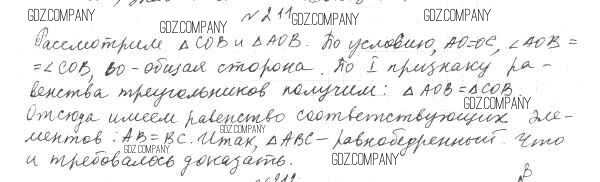 GDZ.COMPANY № 211 GDZ.COMPANY GDZ.COMPANY
Рассмотрим △COB и △AOB. По условию, AO=OC, ∠AOB =
= ∠COB, BO - общая сторона. По I признаку ра-
венства треугольников получим: △AOB = △COB.
GDZ.COMPANY
Отсюда имеем равенство соответствующих эле-
ментов: AB = BC. Итак, △ABC - равнобедренный. Что
GDZ.COMPANY
GDZ.COMPANY
и требовалось доказать. GDZ.COMPANY
№ 212 B